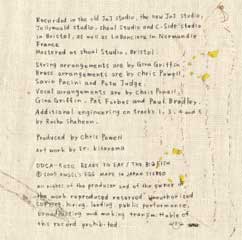 Recorded in the old J&J studio, the new J&J studio,
Jollymould studio, sheal Studio and C-Side studio
in Bristol, as well as LaBonciere in Normandie
France
Mastered at sheal Studio, Bristol.
String arrangements are by Gina Griffin
Brass arrangements are by Chris Powell,
and Pete Judge
Vocal arrangements are by Chris Powell,
Gina Griffin, Pat Forbes and Paul Bradley.
Additional engineering on tracks 1, 3, 4 and 5
by
Produced by Chris Powell
Art work by
READY TO EAT / THE BIG FISH
© 2005 EGG MADE IN JAPAN STEREO
All rights of the producer and of the owner of
the work reproduced reserved. Unauthorised
copying, hiring, lending, public performance,
broadcasting and making
this record prohibited.